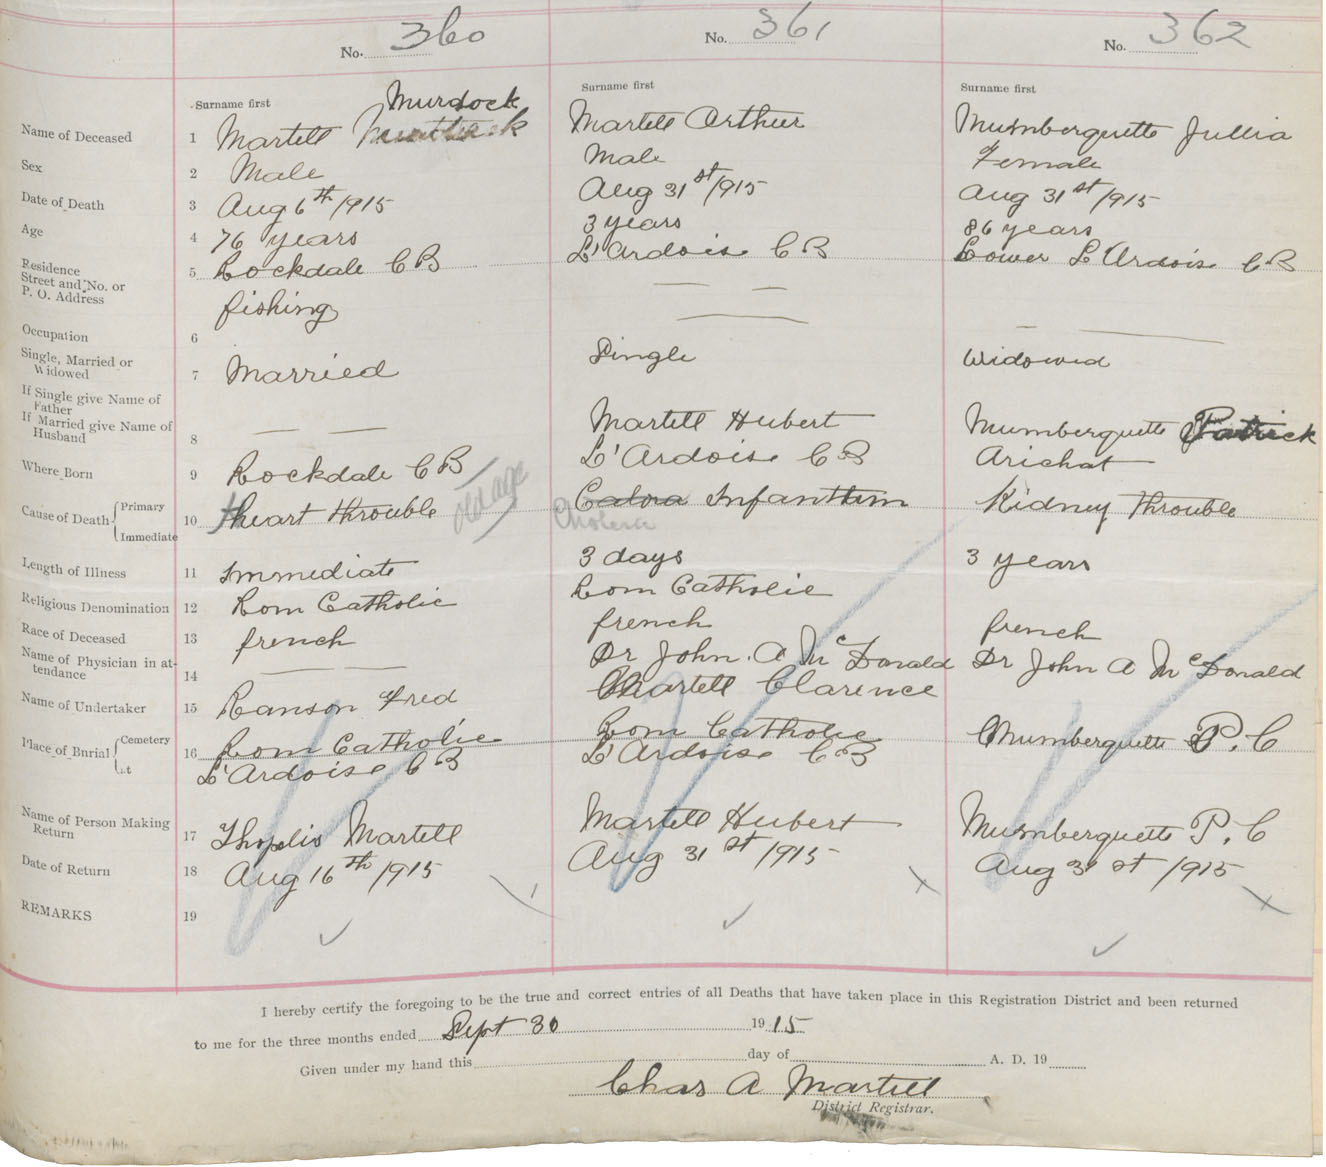 No. 360
No. 361
No. 362
Surname first
Surname first
Surname first
Murdock
Name of Deceased 1 Martell
Martell Arthur
Mumberquette Jullia
Sex 2 Male
Male
Female
Date of Death 3 Aug 6th/1915
Aug 31st/1915
Aug 31st/1915
Age 4 76 years
3 years
86 years
Residence
Street and No. or
P. O. Address
5 Rockdale CB
L'Ardois CB
Lower L'Ardois CB
fishing
Occupation 6
Single, Married or
Widowed
7 Married
Single
Widowed
If Single give Name of
Father
If Married give Name of
Husband
8 — —
Martell Hubert
Mumberquette Patrick
Where Born 9 Rockdale CB
L'Ardoise CB
Arichat
Cause of Death { Primary
Immediate
10 Heart Throuble
old age
Calora Infanttim
Cholera
Kidney Throuble
Length of Illness 11 Immediate
3 days
3 years
Religious Denomination 12 Rom Catholic
Rom Catholic
Race of Deceased 13 french
french
french
Name of Physician in at-
tendance
14 — —
Dr John. A McDonald
Dr John A McDonald
Name of Undertaker 15 Ranson Fred
Martell Clarence
Place of Burial { Cemetery
At
16 Rom Catholic
L'Ardoise CB
Rom Catholic
L'Ardoise CB
Mumberquette P. C
Name of Person Making
Return
17 Thoplis Martell
Martell Hubert
Mumberquette P. C
Date of Return 18 Aug 16th/1915
Aug 31st/1915
Aug 31st/1915
REMARKS 19
I hereby certify the foregoing to be the true and correct entries of all Deaths that have taken place in this Registration District and been returned
to me for the three months ended Sept 30 1915
Given under my hand this day of A. D. 19
Chas A Martell
District Registrar.